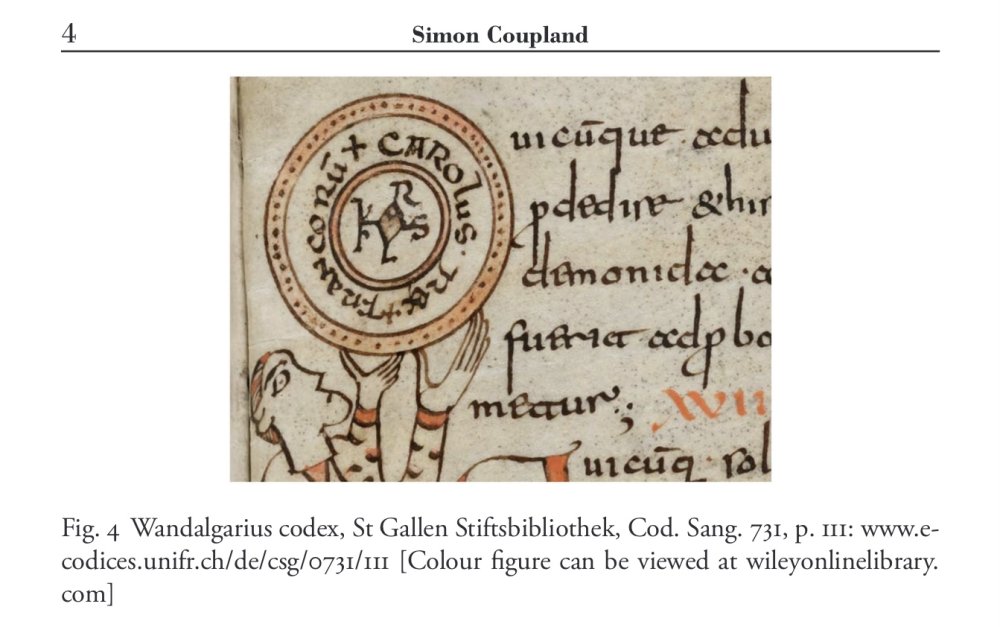 4
Simon Coupland
+ CAROLUS · REX FRANCORŪ
KRLS
uicūque
pdedire & hir
demonida · a
fuerit adp bo
metur ;
uicūq sol
Fig. 4 Wandalgarius codex, St Gallen Stiftsbibliothek, Cod. Sang. 731, p. 111: www.e-
codices.unifr.ch/de/csg/0731/111 [Colour figure can be viewed at wileyonlinelibrary.
com]